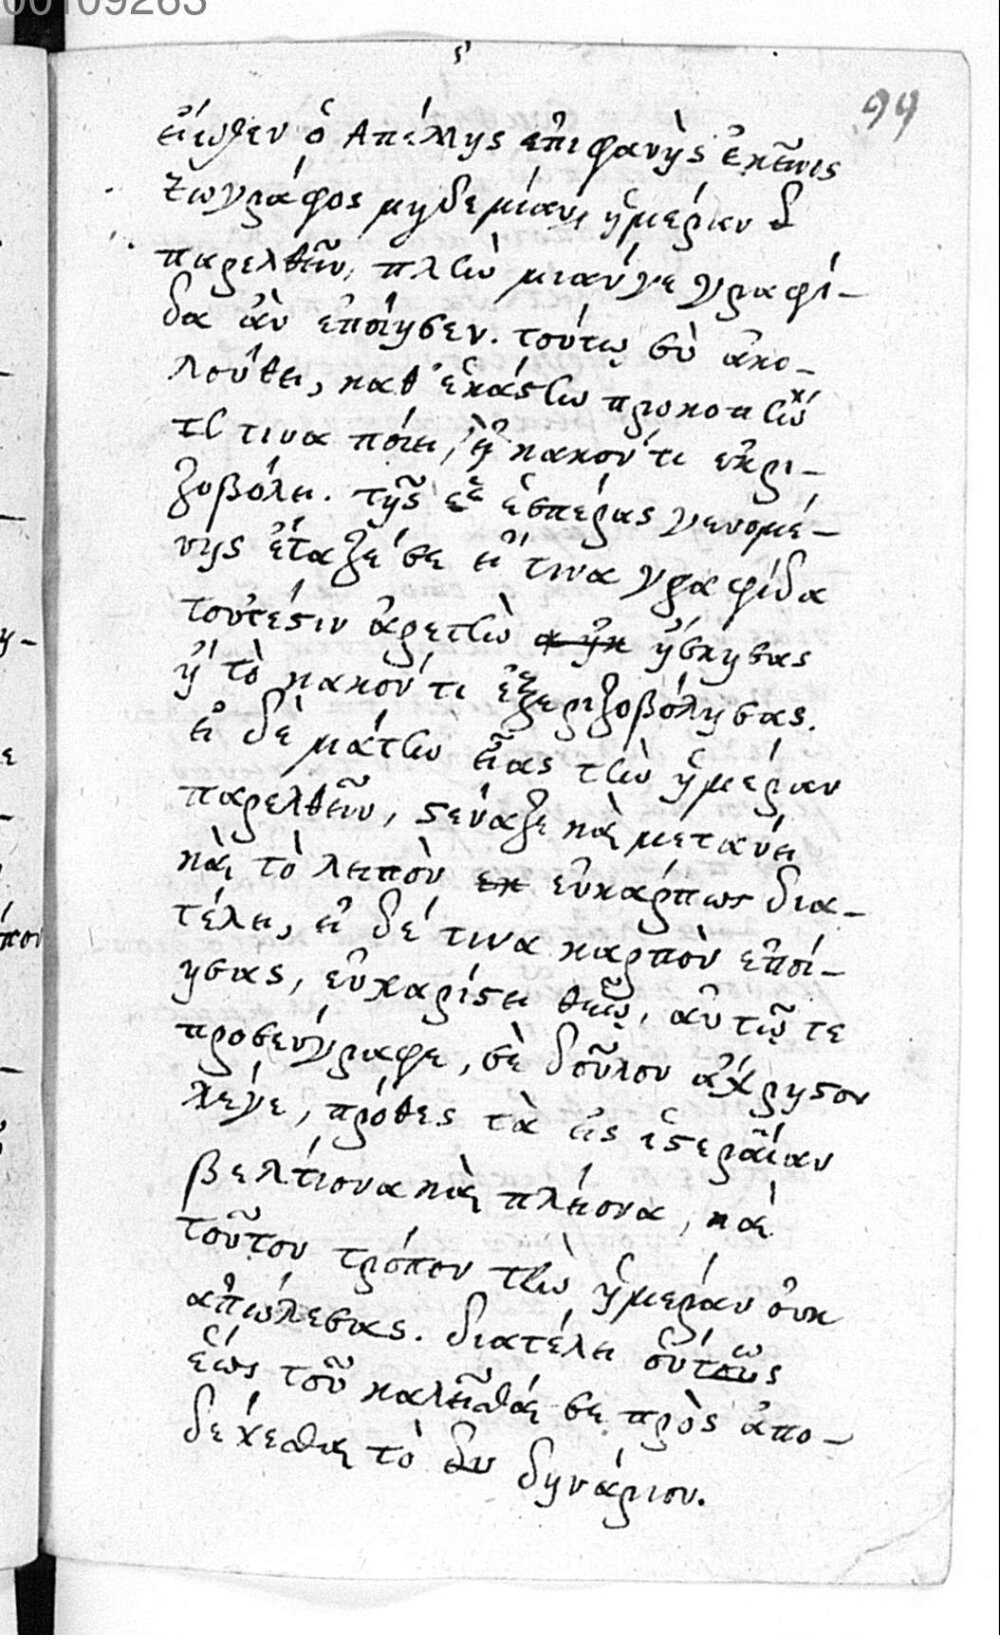 00109263
ς'
99
εἴωθεν ὁ Ἀπέλλης ἐπιφανὴς ἐκεῖνος
ζωγράφος μηδεμίαν ἡμέραν
παρελθεῖν, πλὴν μιαν γε γραφί-
δα ἂν ἐποίησεν. τούτῳ σὺ ἀκο-
λούθει, καθ' ἑκάστην προκοπὴν
τινα ποίει, ἢ κακόν τι ἐκρι-
ζοβόλει. τῆς ἑσπέρας γενομέ-
νης ἐταξέ σε εἴ τινα γραφίδα
τουτέστιν ἀρετὴν ἤσκησας
ἢ τὸ κακόν τι ἐξεριζοβόλησας.
εἰ δὲ μάτην εἴας τὴν ἡμέραν
παρελθεῖν, στέναξε καὶ μετανόει
καὶ τὸ λειπὸν εὐκάρπως δια-
τέλει, εἰ δέ τινα καρπὸν ἐποί-
ησας, εὐχαρίστει θεῷ, αὐτῷ τε
προσεγγραφε, σὲ δοῦλον ἄχρηστον
λέγε, πρόθες τὰ εἰς ὑστεραίαν
βελτίονα καὶ πλείονα, καὶ
τοῦτον τρόπον τὴν ἡμέραν οὐκ
ἀπώλεσας. διατέλει οὕτως
ἕως τοῦ καλεῖσθαί σε πρὸς ἀπο-
δέχεσθαι τὸ ἓν δηνάριον.